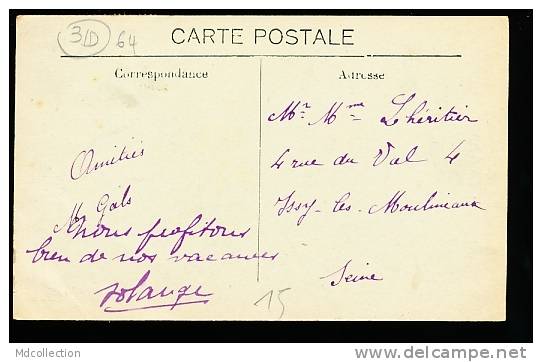 3/D 64
CARTE POSTALE
Correspondance
Adresse
Mr. Mme Lhéritier
4 rue du Val 4
Issy-les-Moulineaux
Seine
Amitiés
M Gals
nous profitons
bien de nos vacances
Solange
15
Mdcollection
delcampe.net